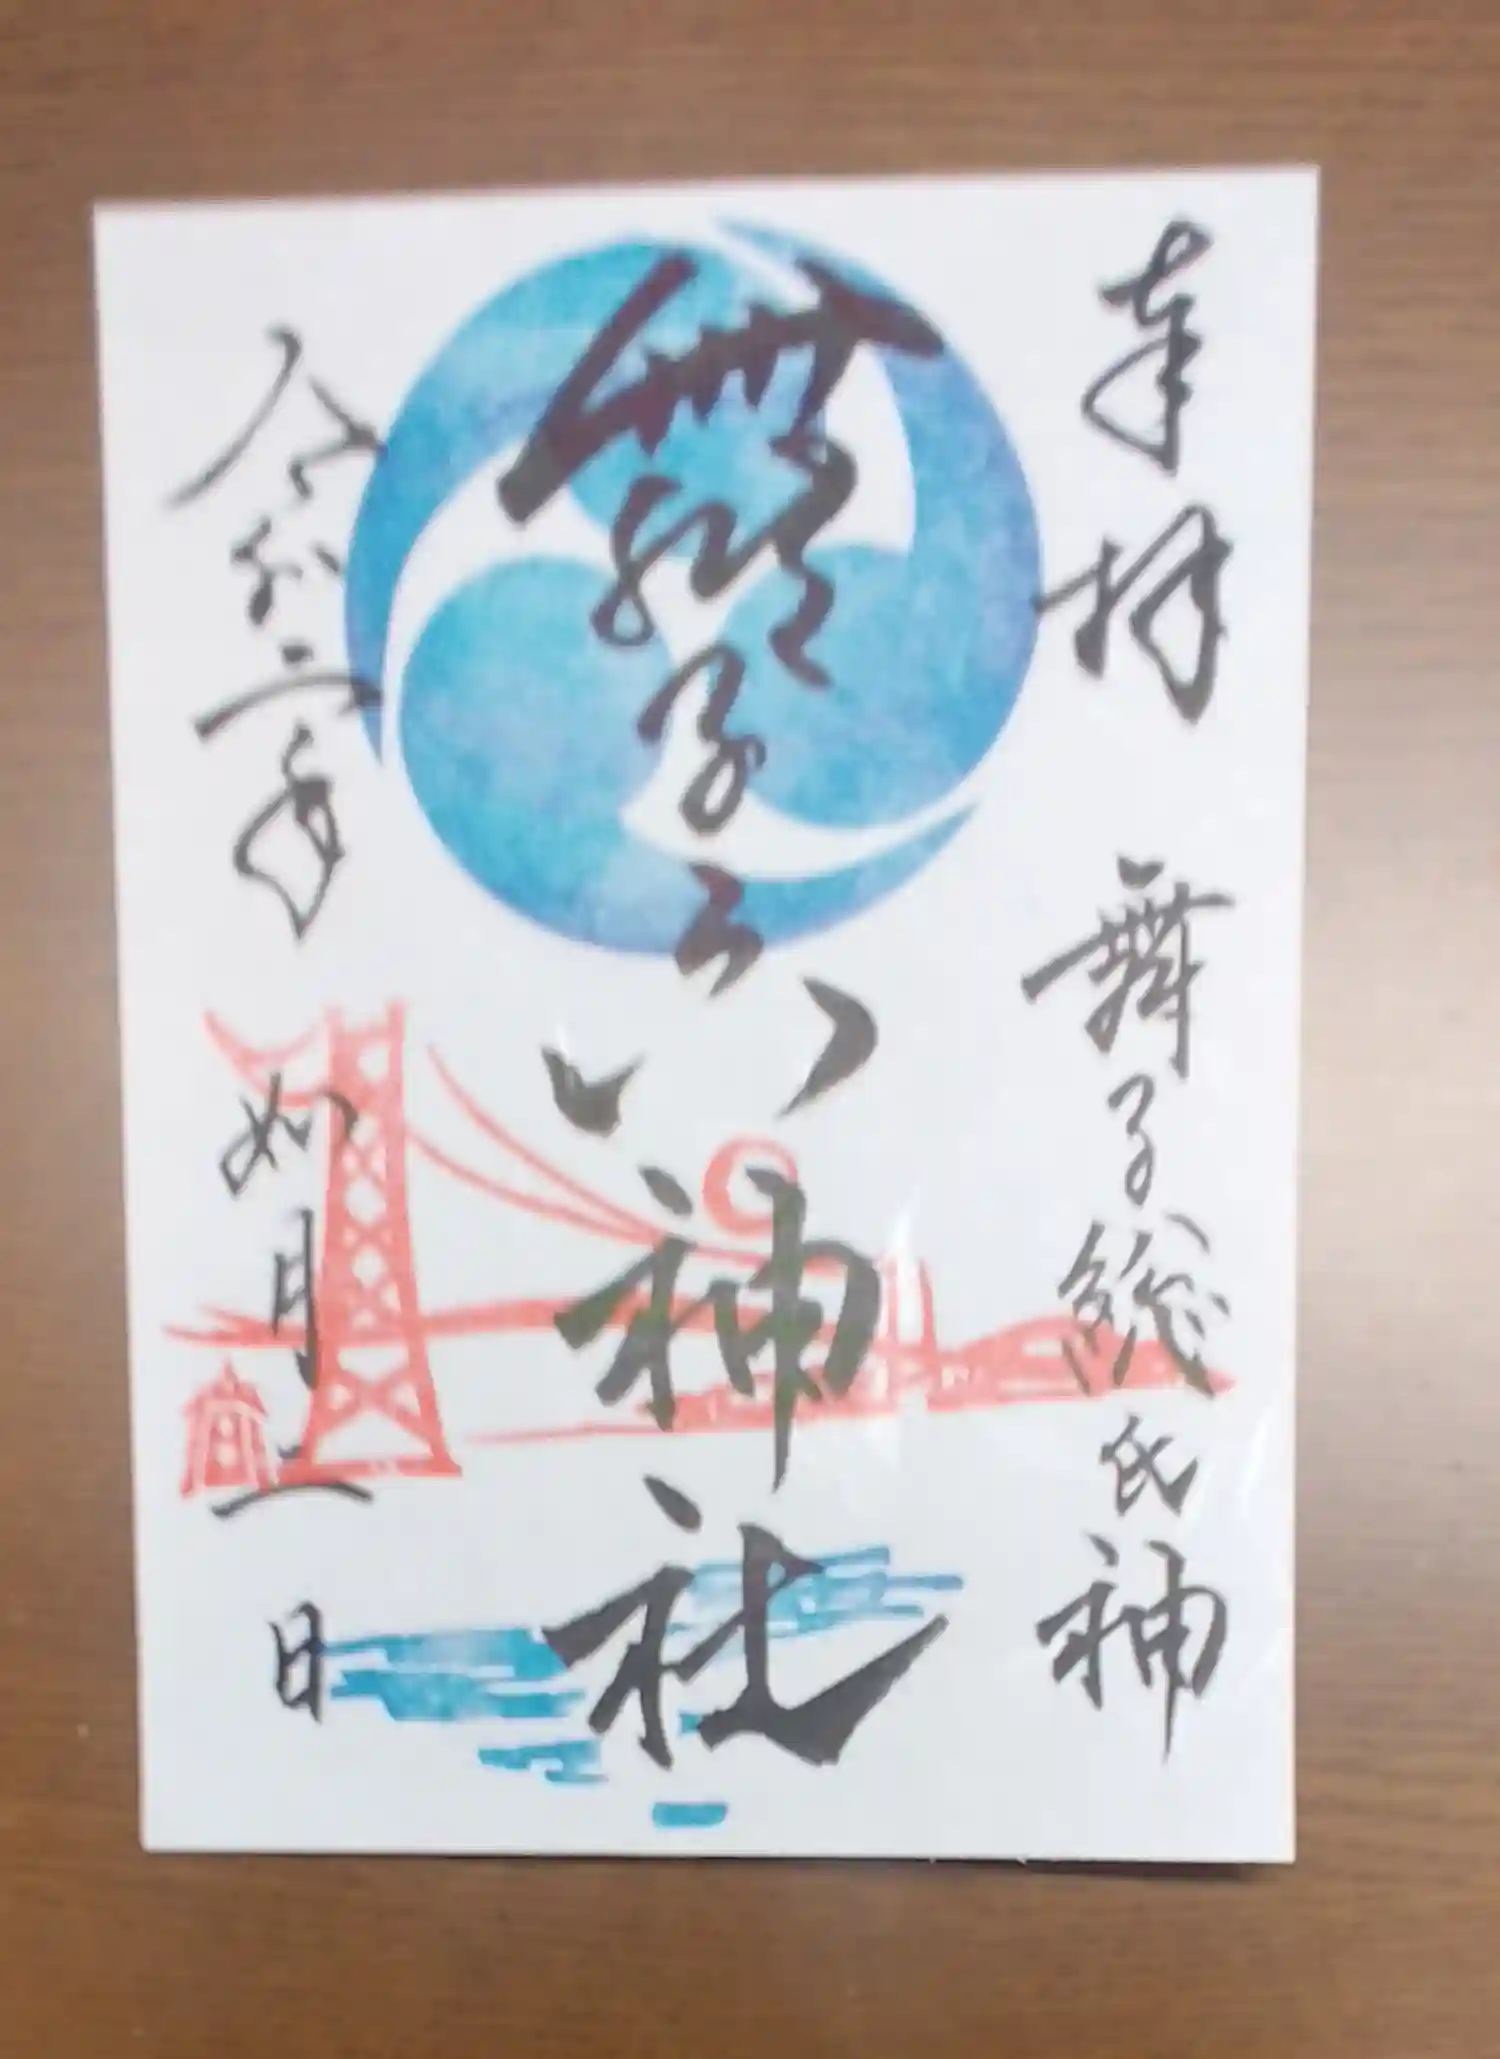 奉拝 舞子総氏神
舞子六神社
令和二年 如月二日